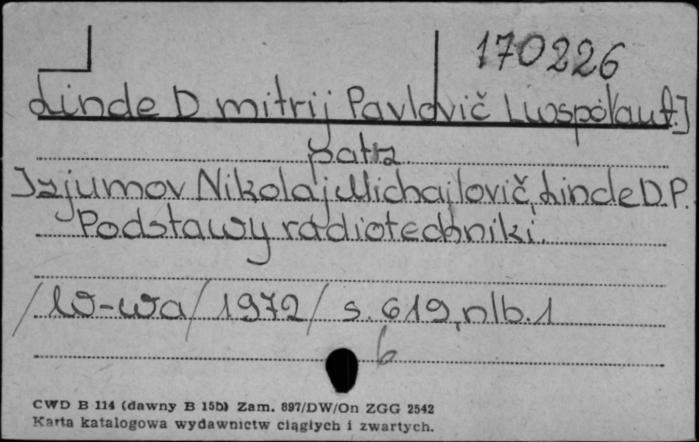 170226
Linde Dmitrij Pavlovič [współaut.]
patrz
Izjumov Nikolaj Michajlovič, Linde D.P.
Podstawy radiotechniki.
/W-wa/ 1972/ s. 619, nlb. 1
b
CWD B 114 (dawny B 15b) Zam. 897/DW/On ZGG 2542
Karta katalogowa wydawnictw ciągłych i zwartych.